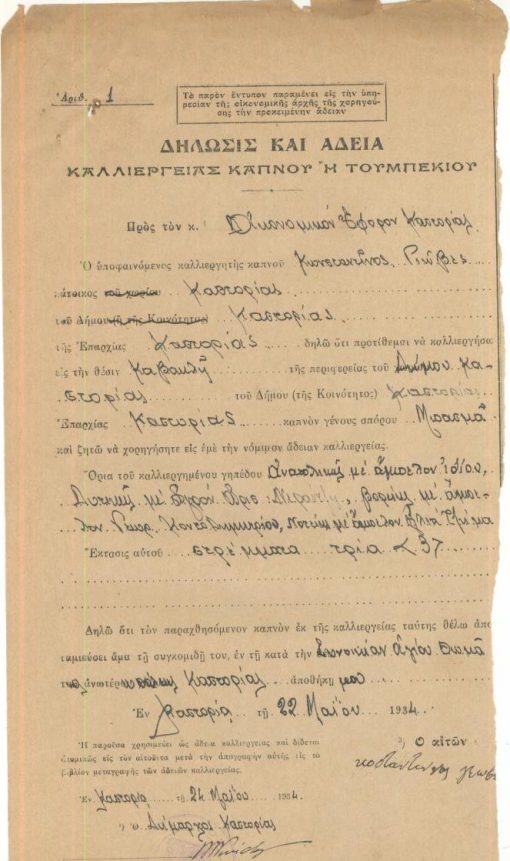 Ἀριθ. 1
Τὸ παρὸν ἔντυπον παραμένει εἰς τὴν ὑπη-
ρεσίαν τῆς οἰκονομικῆς ἀρχῆς τῆς χορηγού-
σης τὴν προκειμένην ἄδειαν
ΔΗΛΩΣΙΣ ΚΑΙ ΑΔΕΙΑ
ΚΑΛΛΙΕΡΓΕΙΑΣ ΚΑΠΝΟΥ Ἢ ΤΟΥΜΠΕΚΙΟΥ
Πρὸς τὸν κ. Οἰκονομικὸν Ἔφορον Καστορίας
Ὁ ὑποφαινόμενος καλλιεργητὴς καπνοῦ Κωνσταντῖνος
κάτοικος τοῦ χωρίου Καστορίας
τοῦ Δήμου (ἢ τῆς Κοινότητος) Καστορίας
τῆς Ἐπαρχίας Καστορίας δηλῶ ὅτι προτίθεμαι νὰ καλλιεργήσω
εἰς τὴν θέσιν Καβακλῆ τῆς περιφερείας τοῦ Δήμου Κα-
στορίας τοῦ Δήμου (τῆς Κοινότητος) Καστορίας
Ἐπαρχίας Καστορίας καπνὸν γένους σπόρου Μπασμᾶ
καὶ ζητῶ νὰ χορηγήσητε εἰς ἐμὲ τὴν νόμιμον ἄδειαν καλλιεργείας.
Ὅρια τοῦ καλλιεργημένου γηπέδου Ἀνατολικῶς μὲ ἄμπελον ἰδίου,
Δυτικῶς μὲ βορίως μὲ ἄμπε-
λον Γεωρ. Χατζηδημητρίου, Νοτίως μὲ ἄμπελον Ἠλία
Ἔκτασις αὐτοῦ στρέμματα τρία 3
Δηλῶ ὅτι τὸν παραχθησόμενον καπνὸν ἐκ τῆς καλλιεργείας ταύτης θέλω ἀπο
ταμιεύσει ἅμα τῇ συγκομιδῇ του, ἐν τῇ κατὰ τὴν Συνοικίαν Ἁγίου Θωμᾶ
ἀνωτέρω πόλεως Καστορίας ἀποθήκῃ μου
Ἐν Καστορίᾳ τῇ 22 Μαΐου 1934
Ἡ παροῦσα χρησιμεύει ὡς ἄδεια καλλιεργείας καὶ δίδεται
ἀτομικῶς εἰς τὸν αἰτοῦντα μετὰ τὴν ἀπογραφὴν αὐτῆς εἰς τὸ
βιβλίον μεταγραφῆς τῶν ἀδειῶν καλλιεργείας.
Ὁ αἰτῶν
Ἐν Καστορίᾳ τῇ 24 Μαΐου 1934
Δήμαρχος Καστορίας